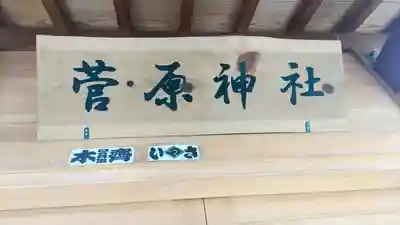 菅原神社
木 齊
いさ